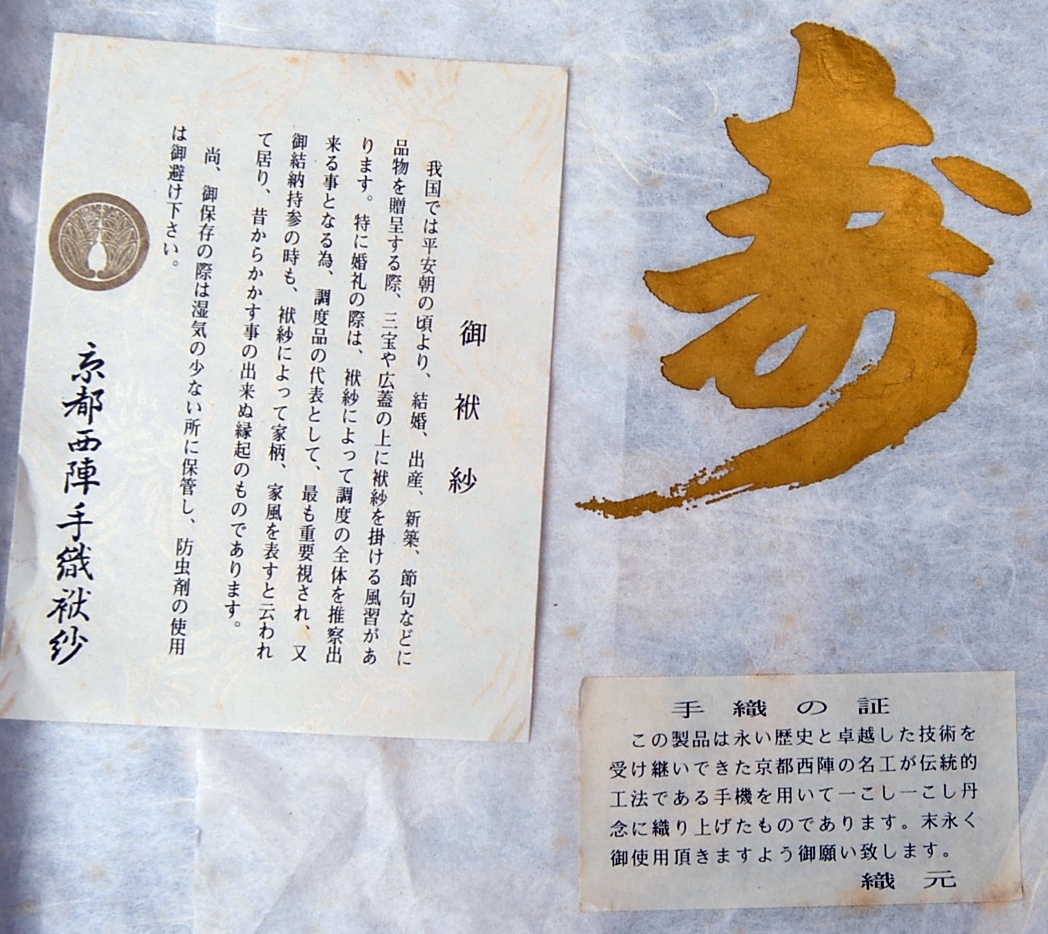 寿
御袱紗
我国では平安朝の頃より、結婚、出産、新築、節句などに
品物を贈呈する際、三宝や広蓋の上に袱紗を掛ける風習があ
ります。特に婚礼の際は、袱紗によって調度の全体を推察出
来る事となる為、調度品の代表として、最も重要視され、又
御結納持参の時も、袱紗によって家柄、家風を表すと云われ
て居り、昔からかかす事の出来ぬ縁起のものであります。
尚、御保存の際は湿気の少ない所に保管し、防虫剤の使用
は御避け下さい。
京都西陣手織袱紗
手織の証
この製品は永い歴史と卓越した技術を
受け継いできた京都西陣の名工が伝統的
工法である手機を用いて一こし一こし丹
念に織り上げたものであります。末永く
御使用頂きますよう御願い致します。
織元